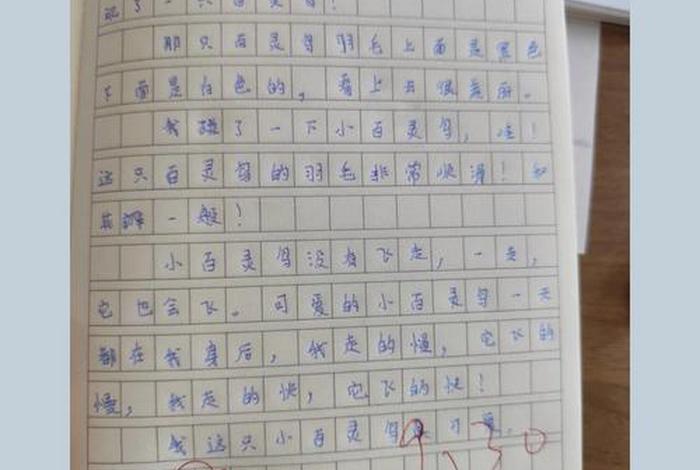 了一只百灵鸟!
那只百灵鸟羽毛上面是黑色
下面是白色的,看上去很美丽。
我碰了一下小百灵鸟,哇!
这只百灵鸟的羽毛非常順滑!和
一般!
小百灵鸟没有飞走,一走,
它也会飞。可爱的小百灵鸟一天
都在我身后,我走的慢,它飞的
慢,我走的快,它飞的快!
我这只小百灵鸟 可爱。
9.30